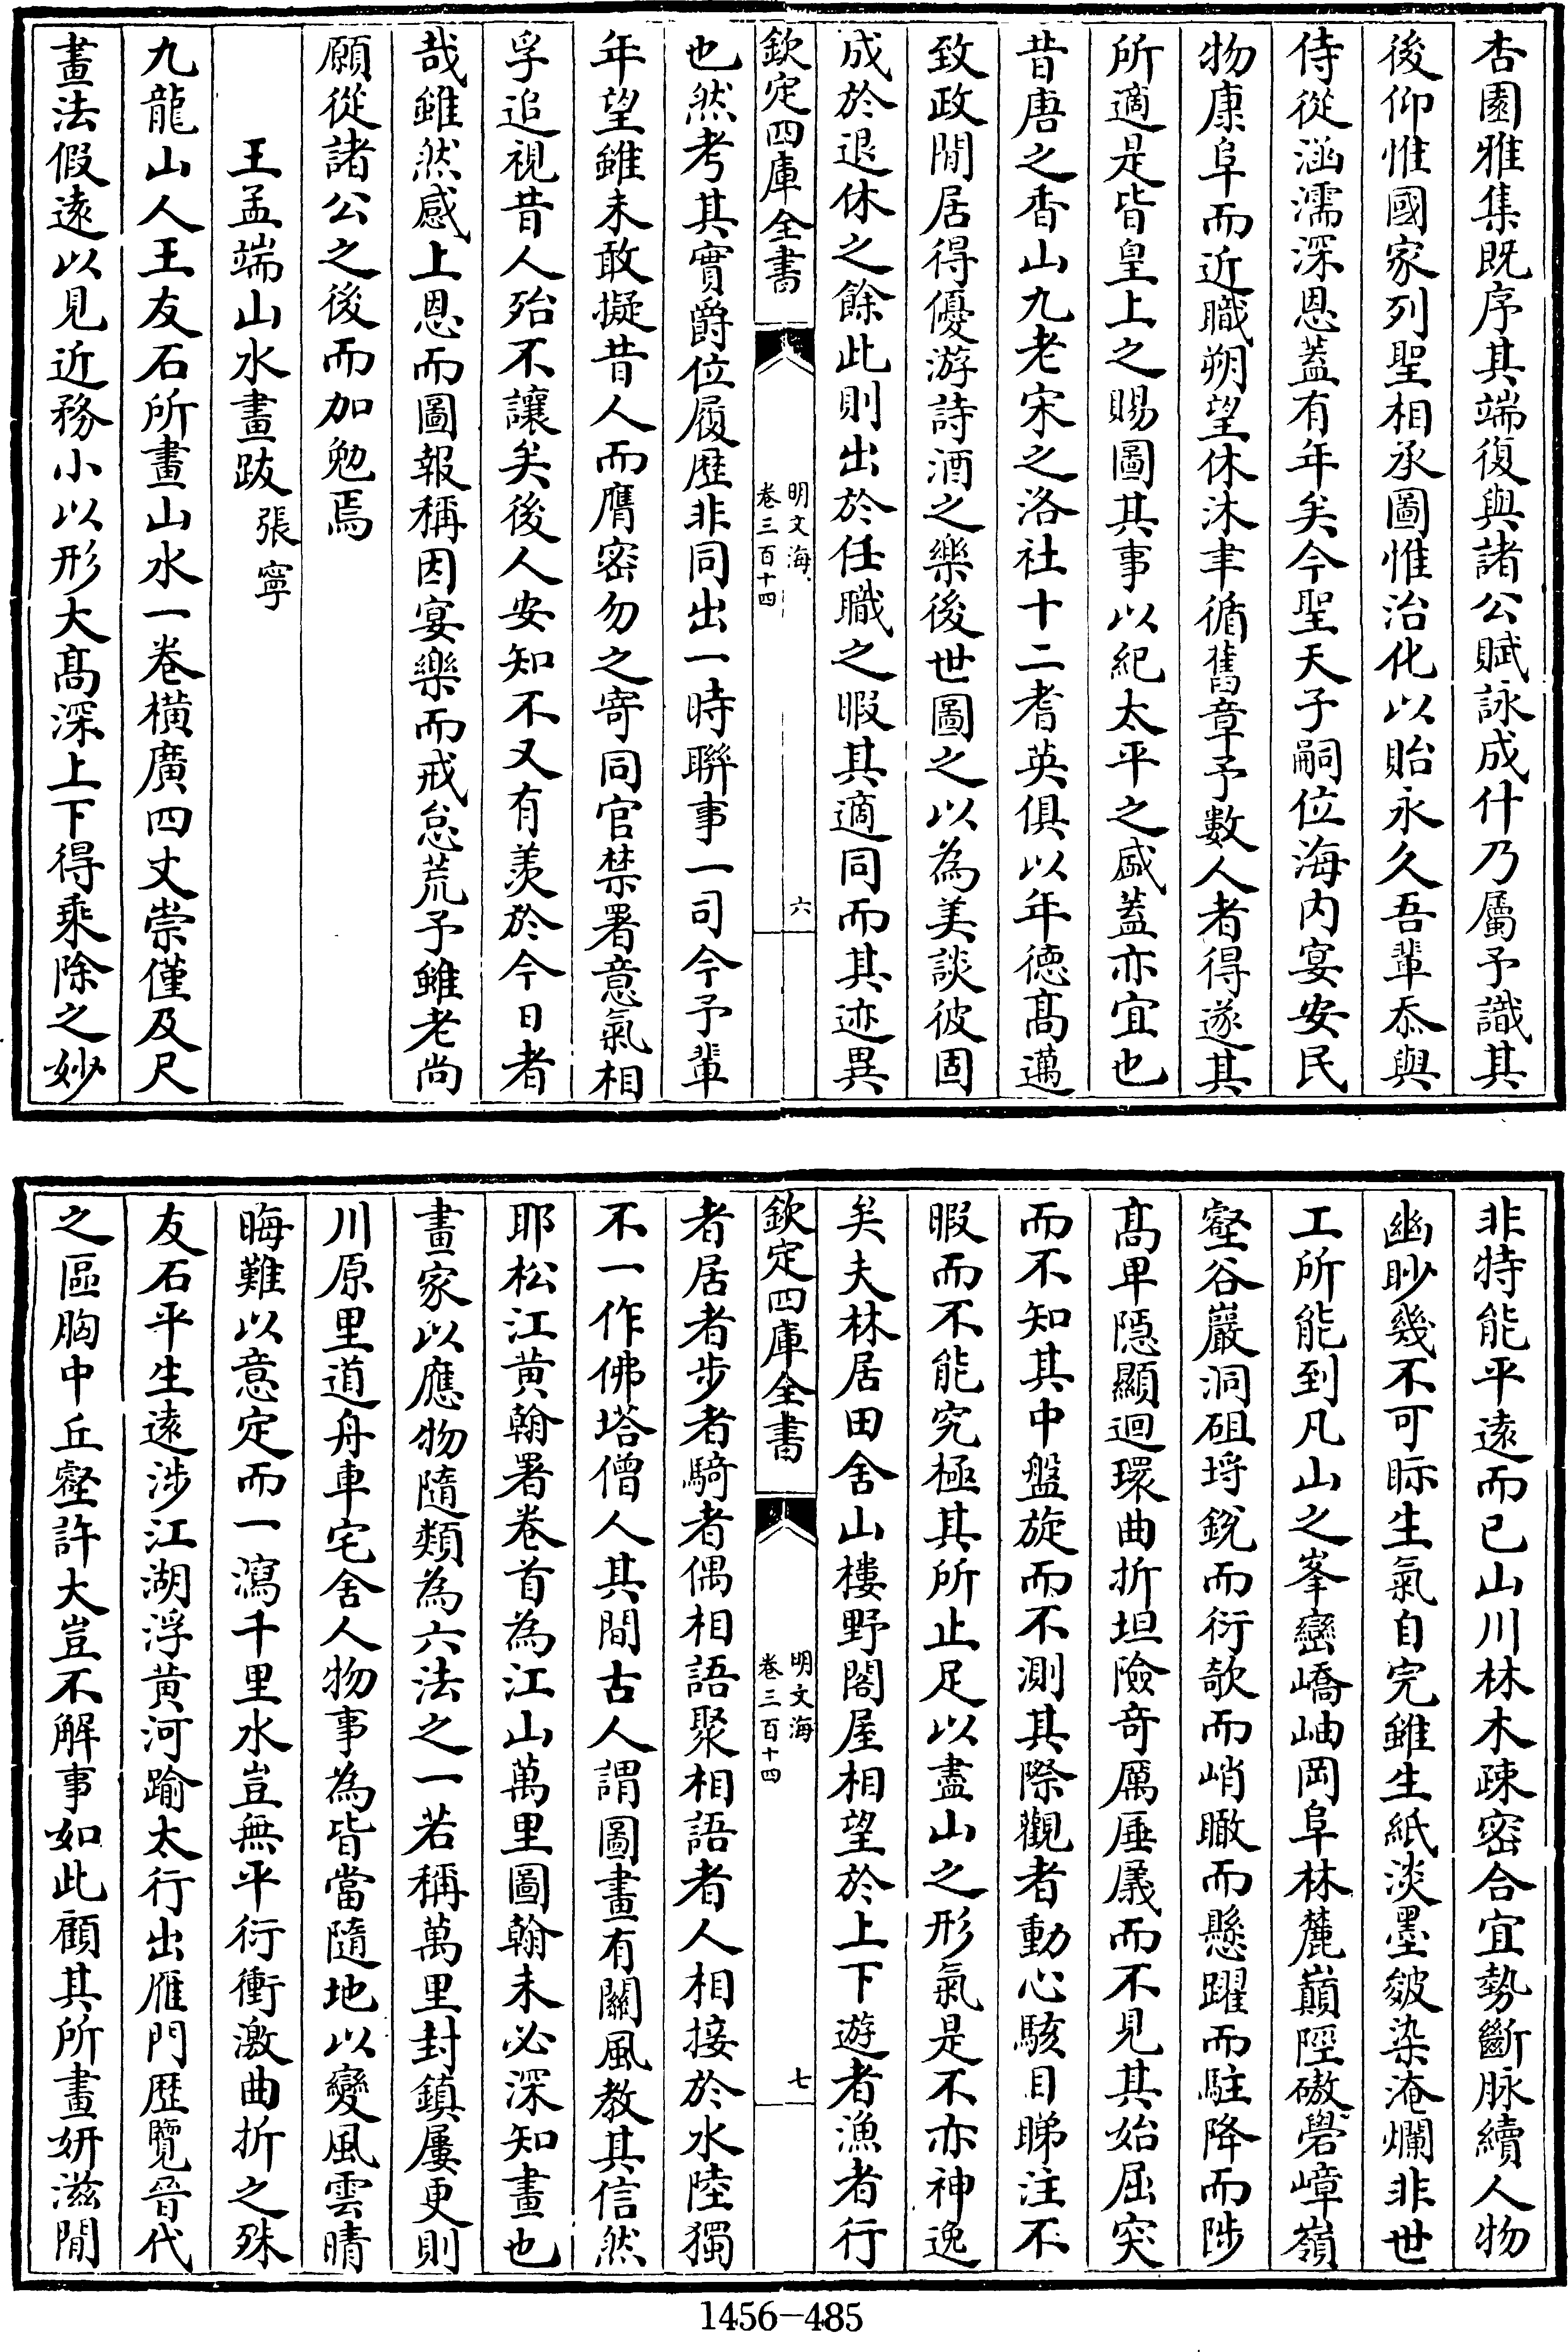 杏園雅集既序其端復與諸公賦詠成什乃屬予識其
後仰惟國家列聖相承圖惟治化以貽永久吾輩忝與
侍從涵濡深恩葢有年矣今聖天子嗣位海内宴安民
物康阜而近職朔望休沐聿循舊章予數人者得遂其
所適是皆皇上之賜圖其事以紀太平之盛葢亦宜也
昔唐之香山九老宋之洛社十二耆英俱以年徳髙邁
致政閒居得優游詩酒之樂後世圖之以為美談彼固
成於退休之餘此則出於任職之暇其適同而其迹異
欽定四庫全書
明文海
卷三百十四
六
也然考其實爵位履歴非同出一時聯事一司今予輩
年望雖未敢擬昔人而膺密勿之寄同官禁署意氣相
孚追視昔人殆不讓矣後人安知不又有羨於今日者
哉雖然感上恩而圖報稱因宴樂而戒怠荒予雖老尚
願從諸公之後而加勉焉
王孟端山水畫跋張寧
九龍山人王友石所畫山水一卷横廣四丈崇僅及尺
畫法假逺以見近務小以形大髙深上下得乘除之妙
非特能平逺而已山川林木疎密合宜勢斷脉續人物
幽眇幾不可眎生氣自完雖生紙淡墨皴染淹爛非世
工所能到凡山之峯巒嶠岫岡阜林麓巔陘磝礐嶂嶺
壑谷巖洞砠埒銳而衍欹而峭瞰而懸躍而駐降而陟
髙卑隠顯迴環曲折坦險竒厲厜㕒而不見其始屈突
而不知其中盤旋而不測其際觀者動心駭目睇注不
暇而不能究極其所止足以盡山之形氣是不亦神逸
矣夫林居田舍山樓野閣屋相望於上下遊者漁者行
欽定四庫全書
明文海
卷三百十四
七
者居者步者騎者偶相語聚相語者人相接於水陸獨
不一作佛塔僧人其間古人謂圖畫有關風教其信然
耶松江黄翰署卷首為江山萬里圖翰未必深知畫也
畫家以應物隨類為六法之一若稱萬里封鎮屢更則
川原里道舟車宅舍人物事為皆當隨地以變風雲晴
晦難以意定而一瀉千里水豈無平衍衝激曲折之殊
友石平生逺涉江湖浮黄河踰太行出雁門歴覽晉代
之區胸中丘壑許大豈不解事如此顧其所畫妍滋閒
1456-485